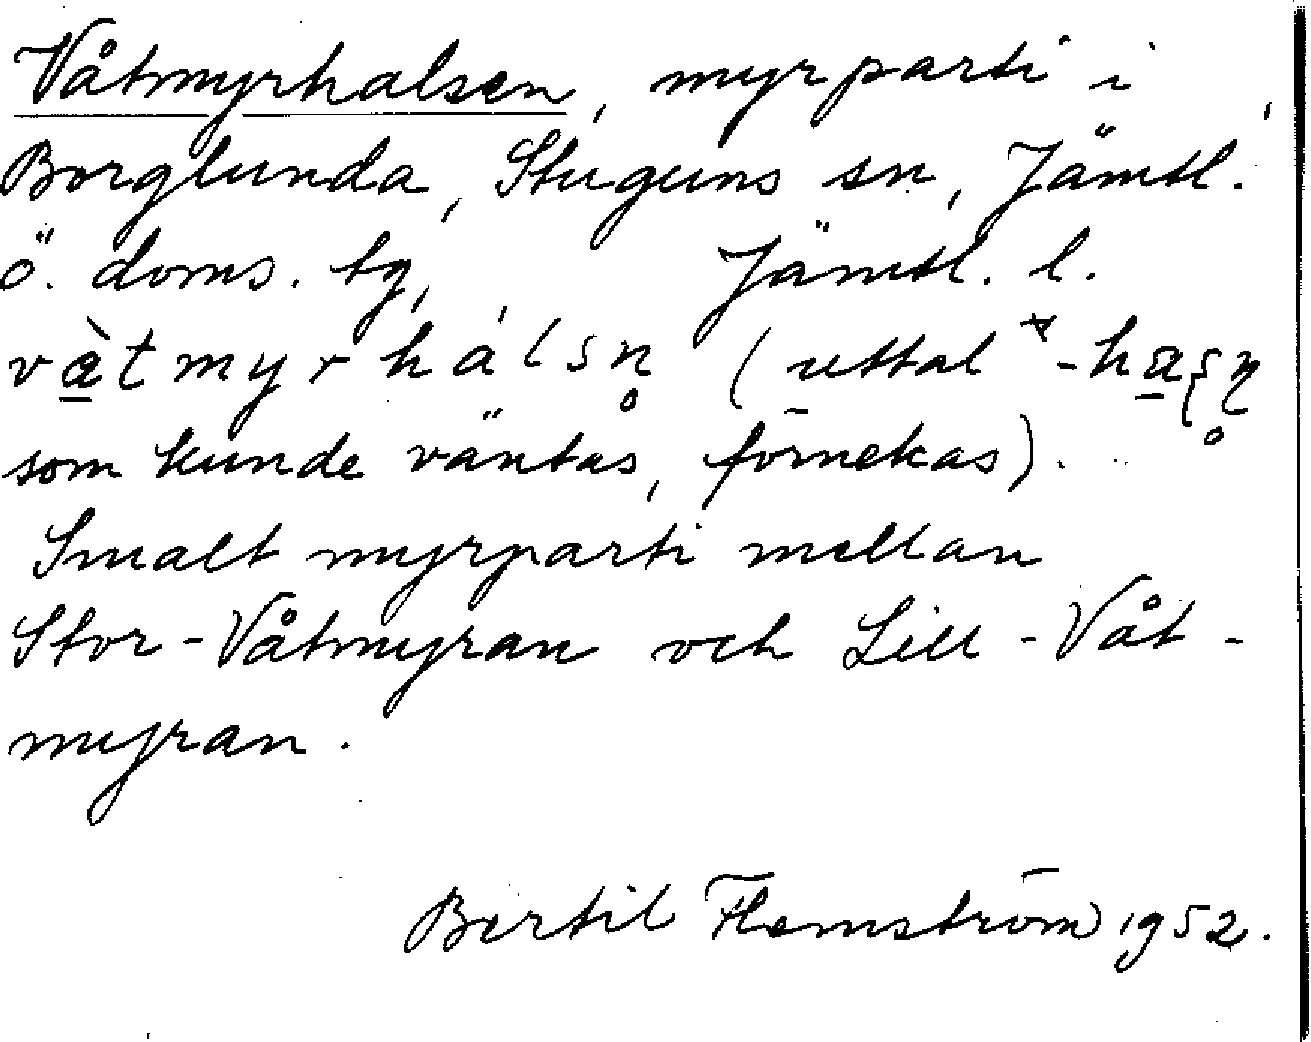 Våtmyrhalsen, myrparti i
Borglunda, Stuguns sn, Jämtl.
ö. doms. tg, Jämtl. l.
som kunde väntas, förnekas).
Smalt myrparti mellan
Stor-Våtmyran och Lill-Våt-
myran.
Bertil Flemström 1952.